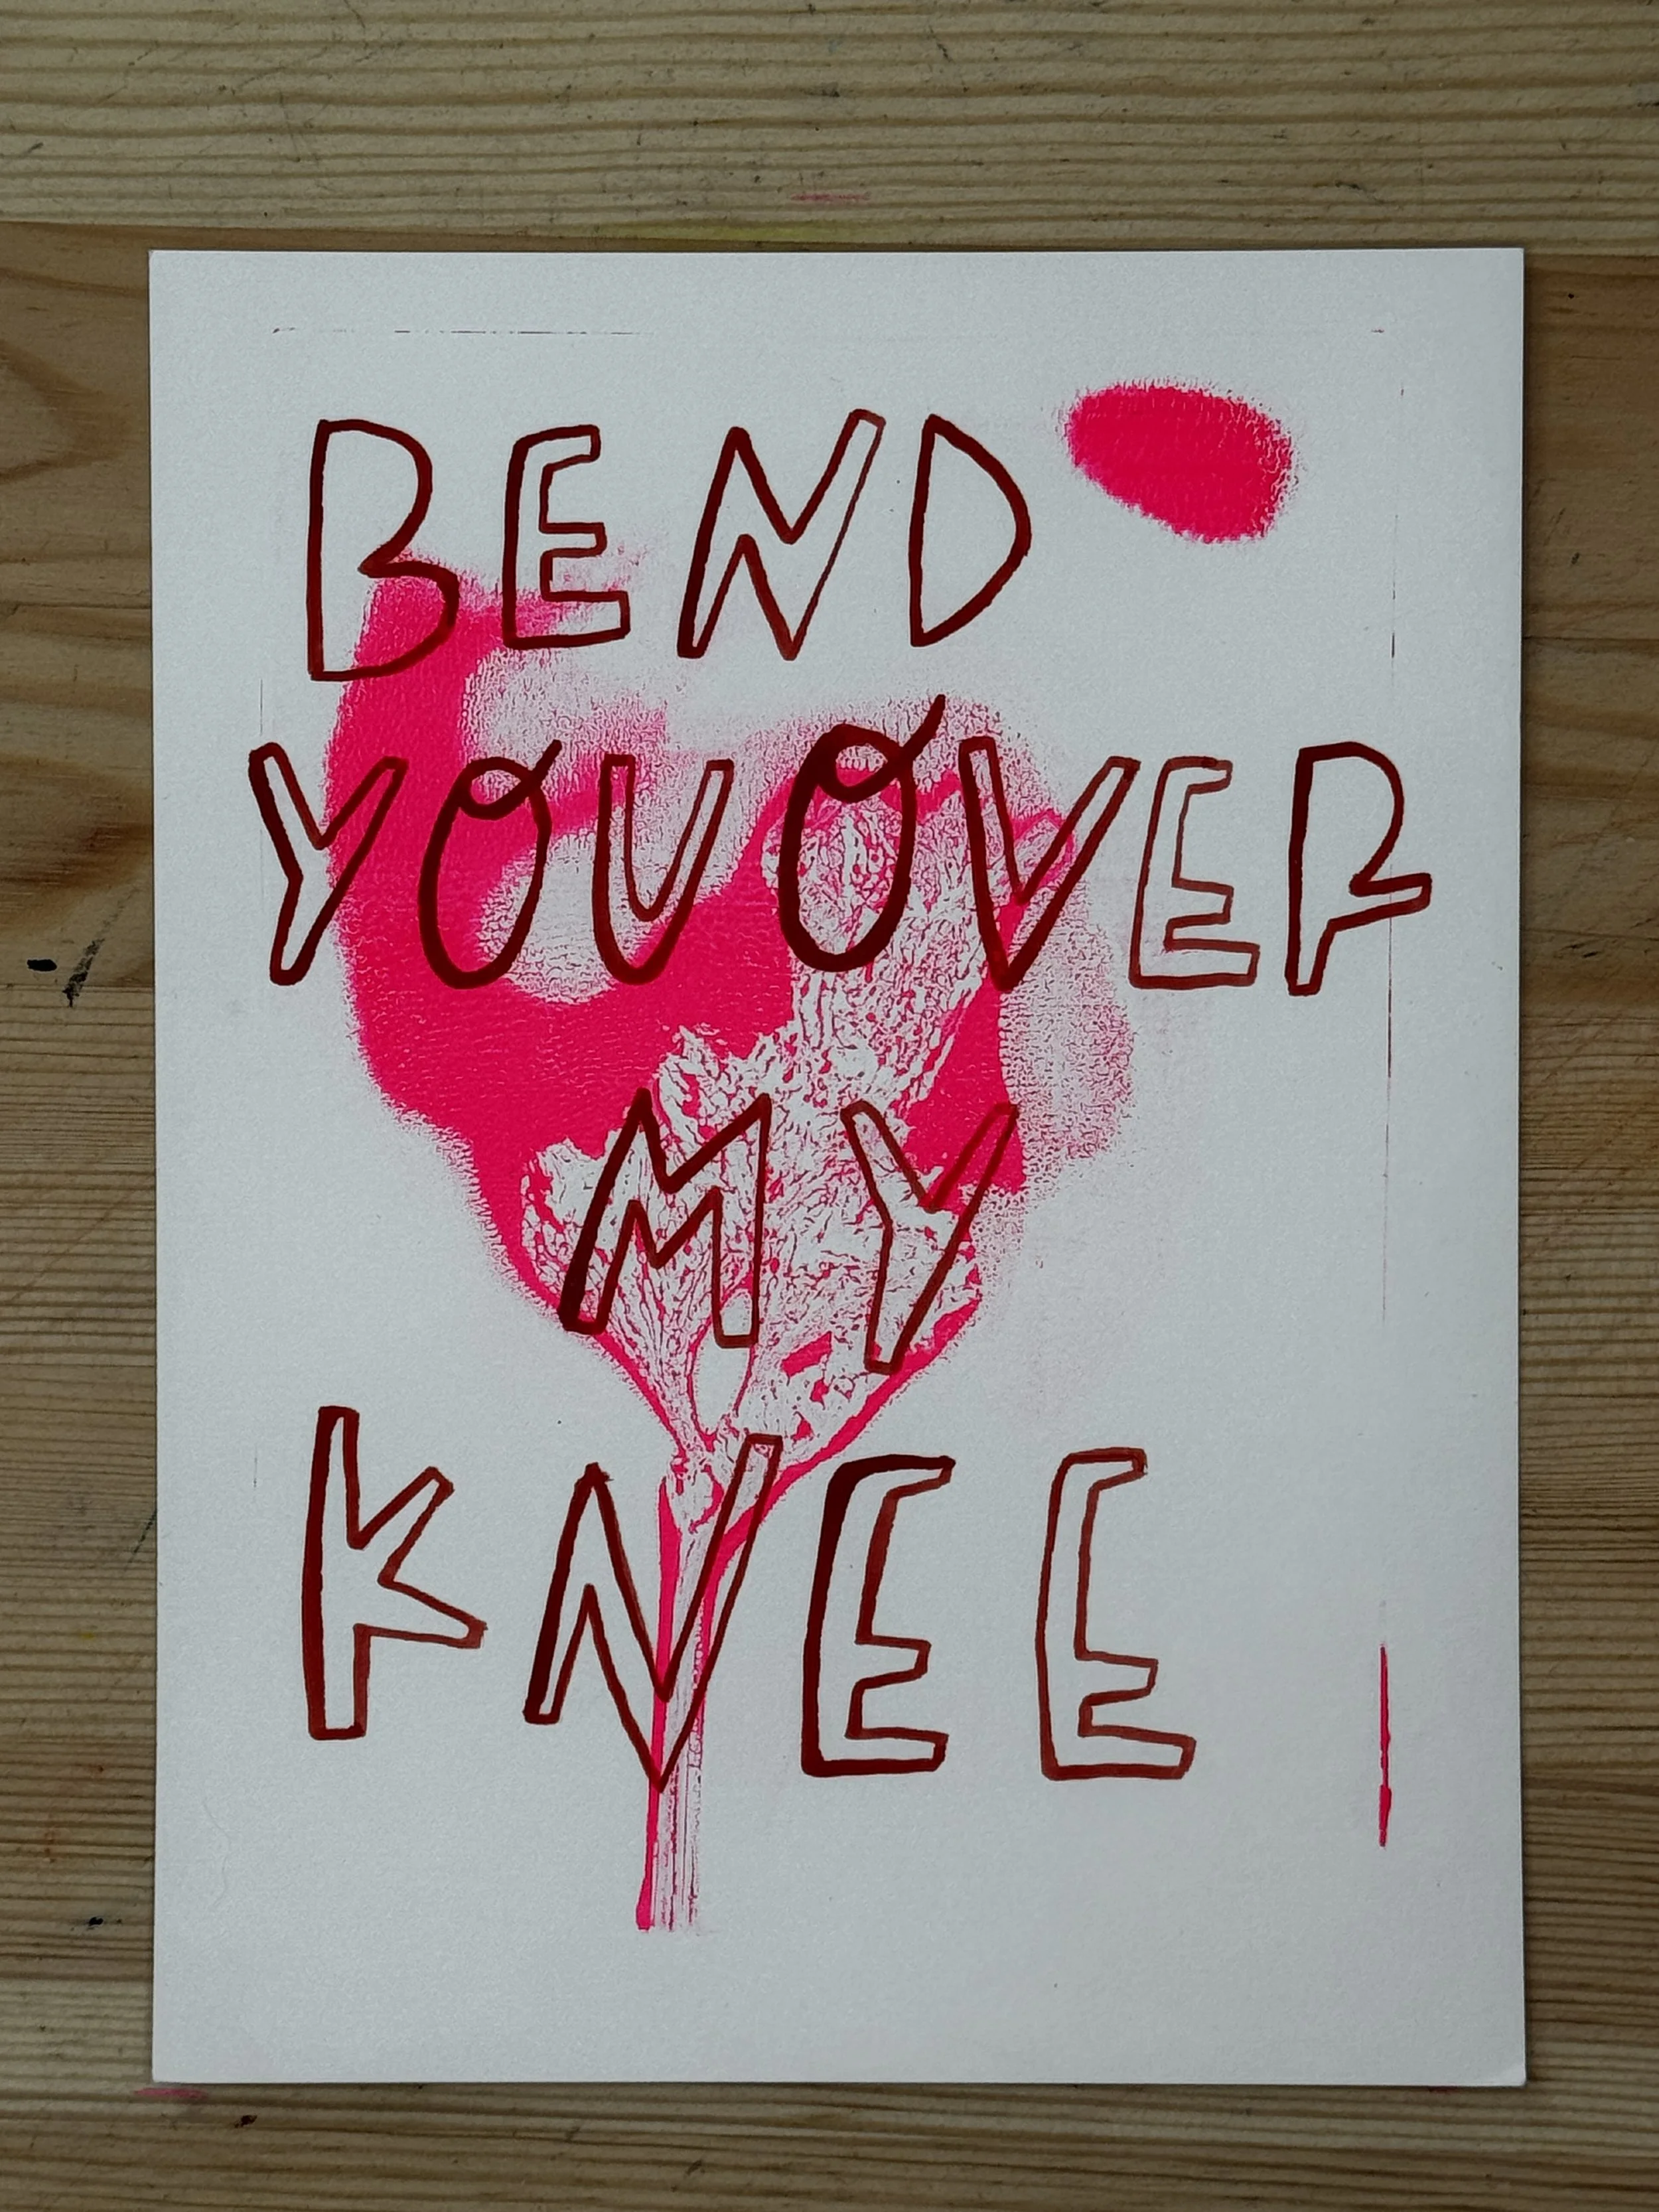 BEND
YOU OVER
MY
KNEE